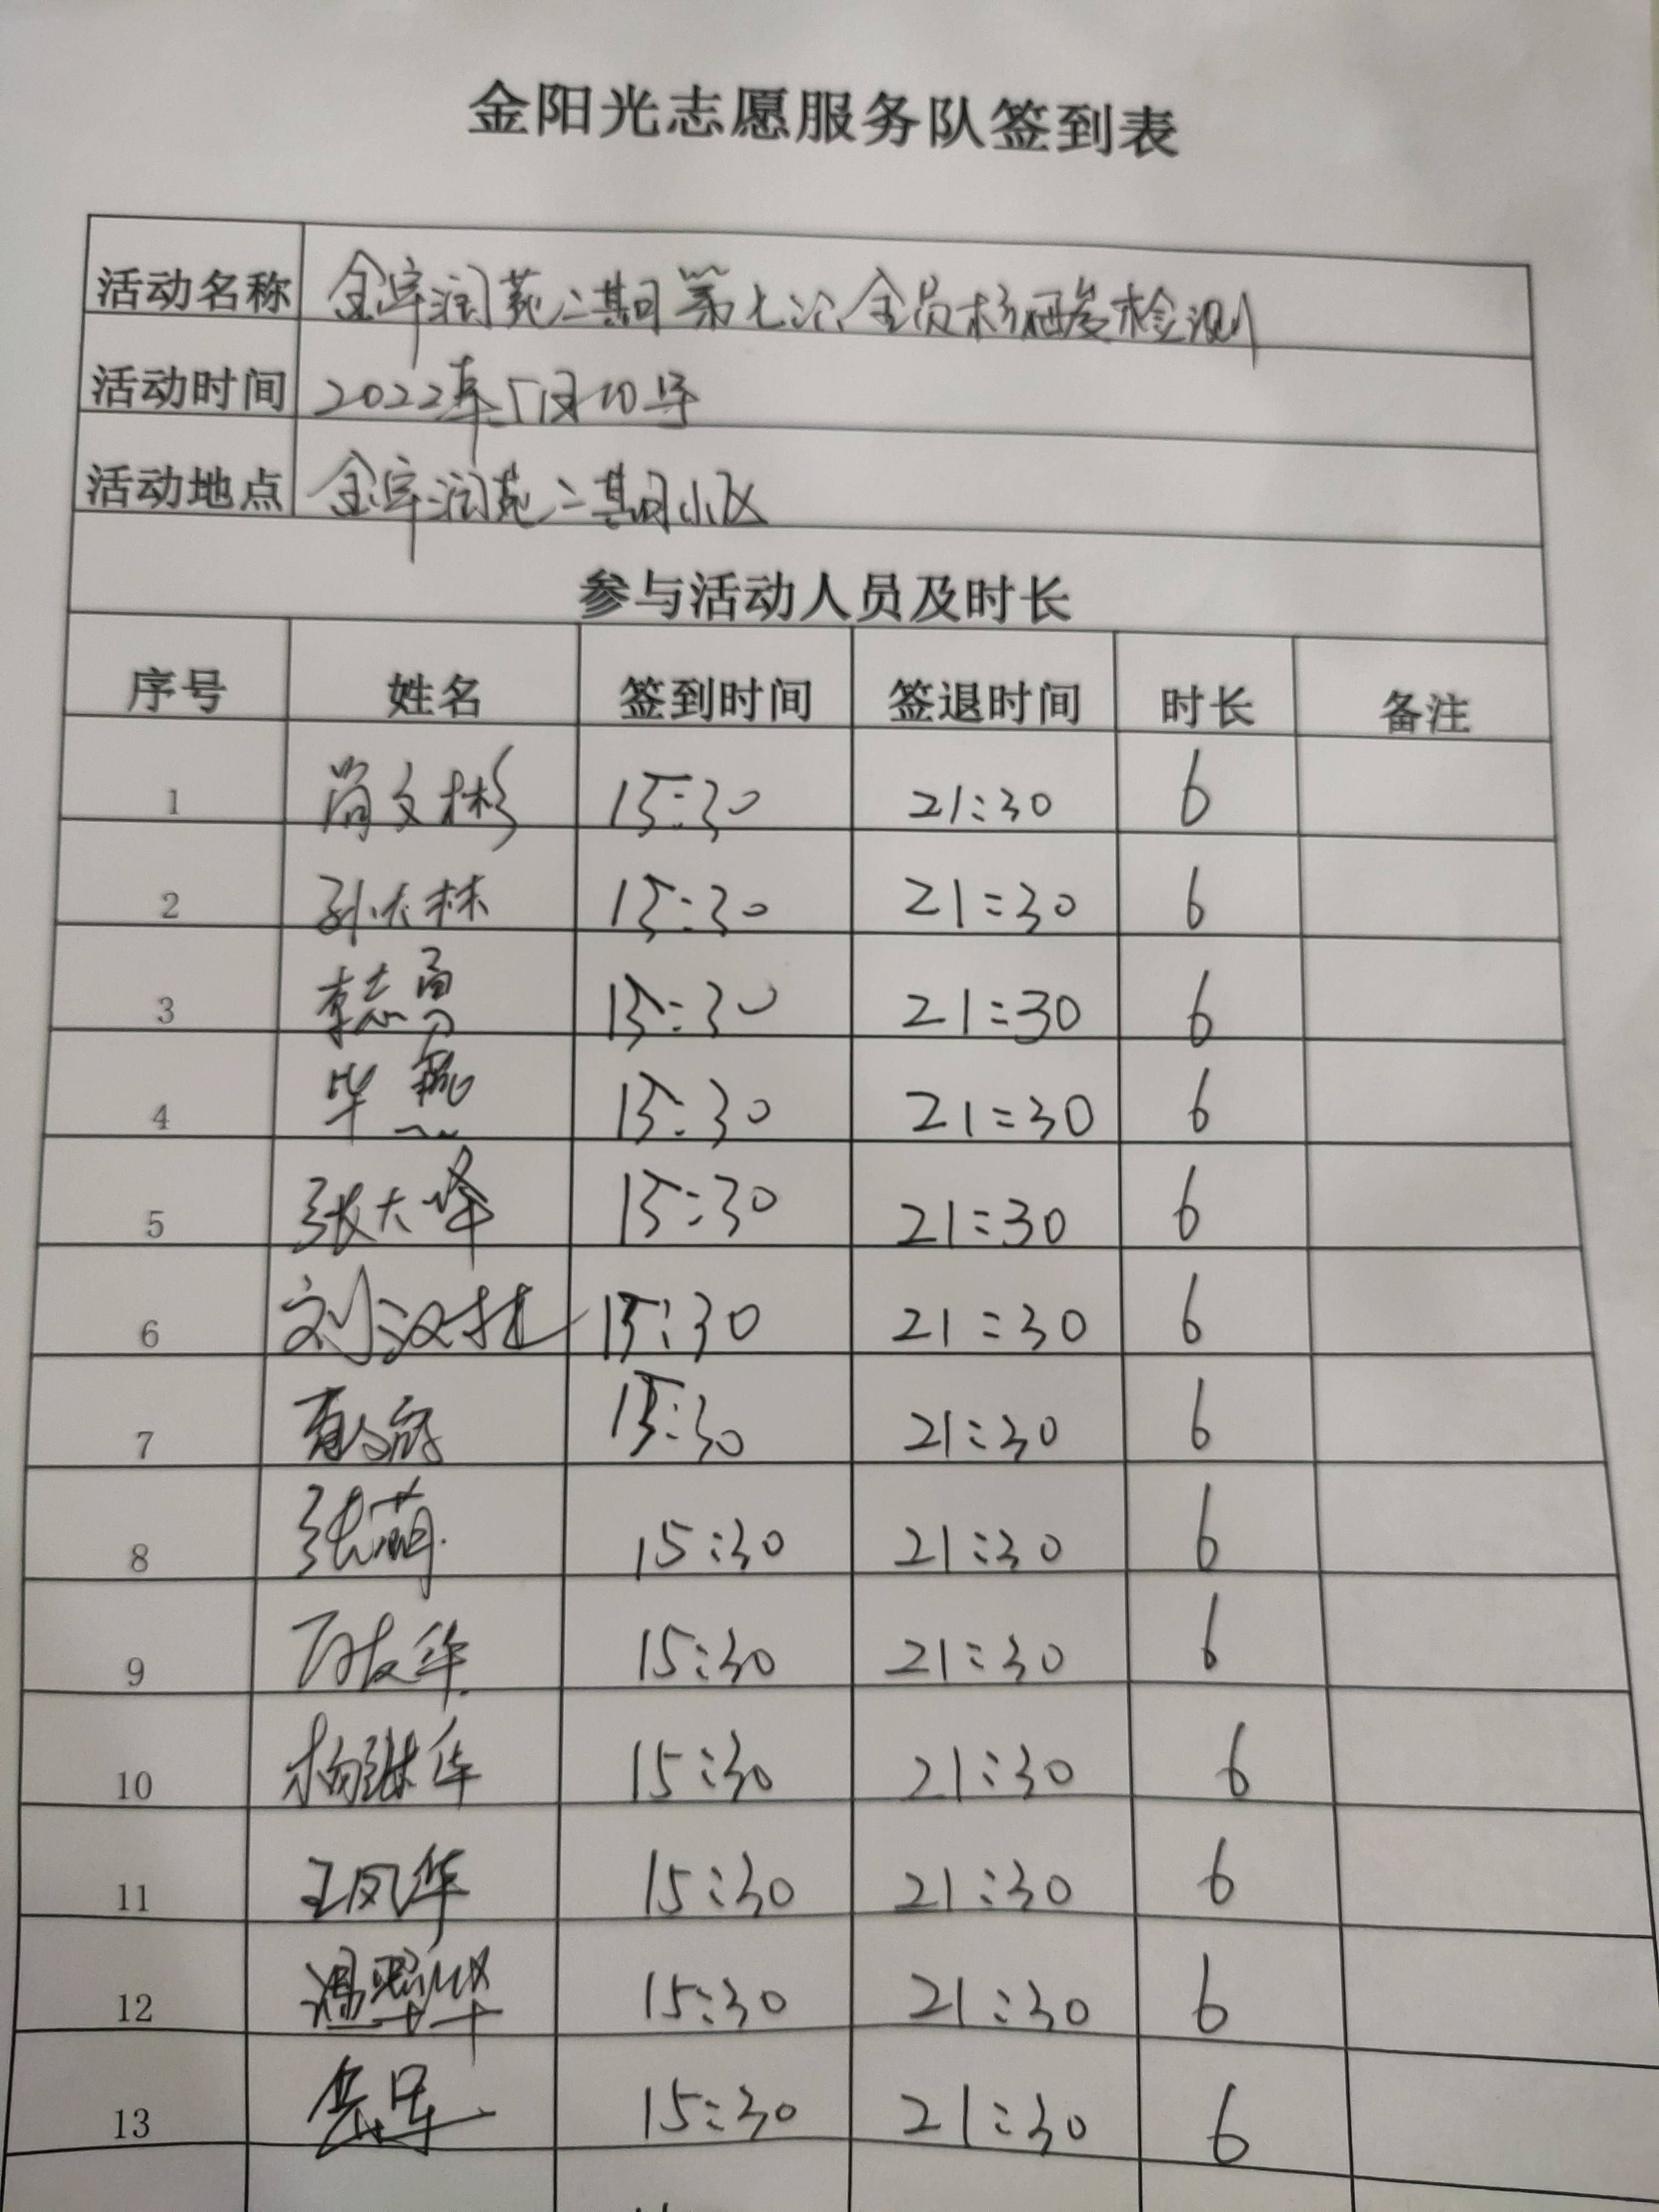 金阳光志愿服务队签到表
活动名称 金岸润苑二期第七次全员核酸检测
活动时间 2022年5月10号
活动地点 金岸润苑二期小区
参与活动人员及时长
序号 姓名 签到时间 签退时间 时长 备注
1 肖文彬 15:30 21:30 6
2 孙大林 15:30 21:30 6
3 李志勇 15:30 21:30 6
4 毕 15:30 21:30 6
5 张大峰 15:30 21:30 6
6 刘汉桂 15:30 21:30 6
7 15:30 21:30 6
8 张萌 15:30 21:30 6
9 15:30 21:30 6
10 杨继华 15:30 21:30 6
11 王凤华 15:30 21:30 6
12 15:30 21:30 6
13 15:30 21:30 6